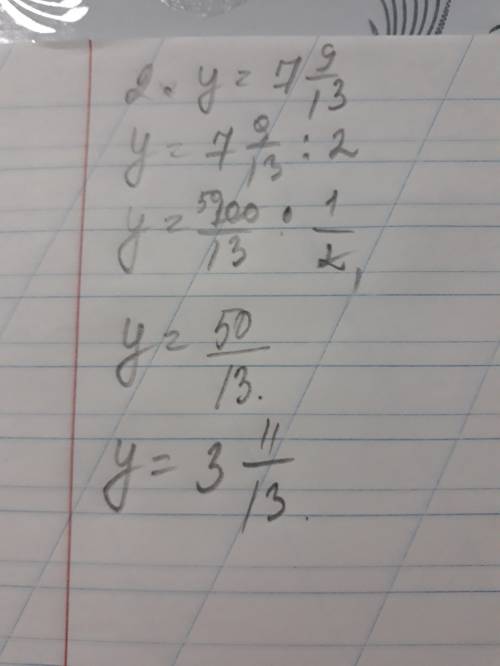 2 · y = 7 9/13
y = 7 9/13 : 2
y = 100/13 · 1/2
50 1
y = 50/13.
y = 3 11/13.